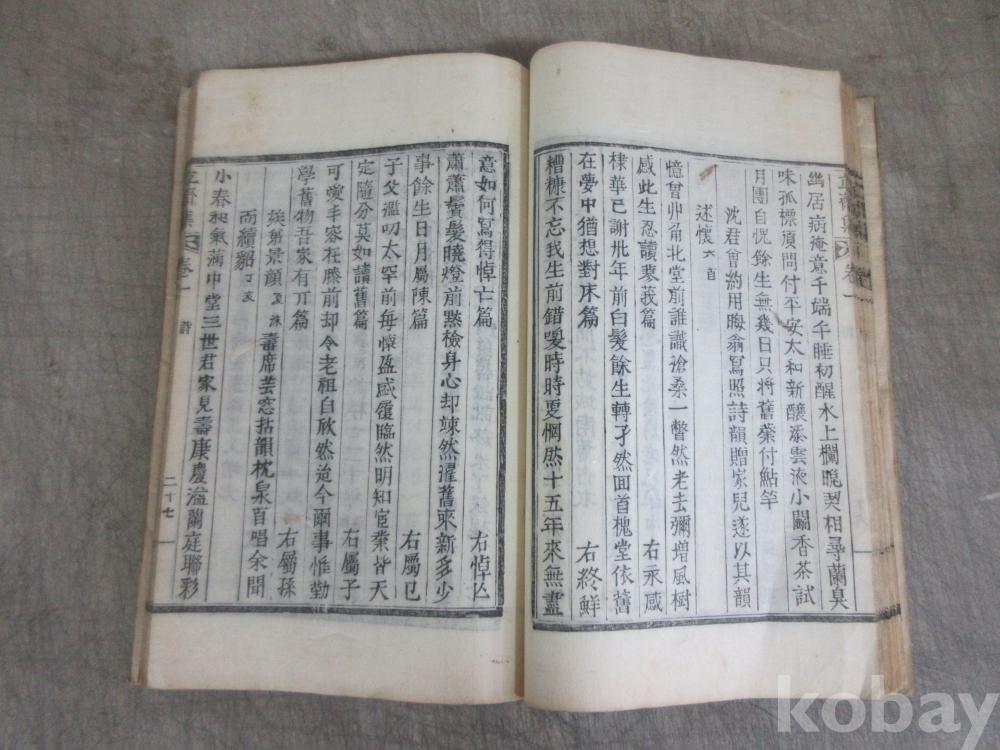 幽居病掩意千端千睡初醒水上欄晚契相尋蘭臭
味孤標頂問付平安太和新釀添雲液小闢香茶試
月團自愧餘生無幾日只將舊藥付鮎竿
沈君會約用晦翁寫照詩韻贈家兒遂以其韻
述懷六首
憶曾丱角北堂前誰識滄桑一瞥然老去彌增風樹
感此生忍讀蓼莪篇 右永感
棣華已謝卅年前白髮餘生轉孑然回首槐堂依舊
在夢中猶想對床篇 右終鮮
糟糠不忘我生前錯嗳時時夏惘然十五年來無盡
意如何寫得悼亡篇 右悼亡
蕭蕭鬢髮曉燈前黙檢身心却竦然濯舊來新多少
事餘生日月屬陳篇 右屬己
子父濫叨太罕前每懷盈感履臨然明知宦業皆天
定隨分莫如讀舊篇 右屬子
可愛丰容在膝前却令老祖自欣然迨今爾事惟勤
學舊物吾家有亓篇 右屬孫
族弟景顏 壽席芸窓拈韻枕泉百唱余聞
而續貂 丁亥
小春和氣滿中堂三世君家見壽康慶溢蘭庭聯彩
卷一
詩
二十七
卷一
kobay